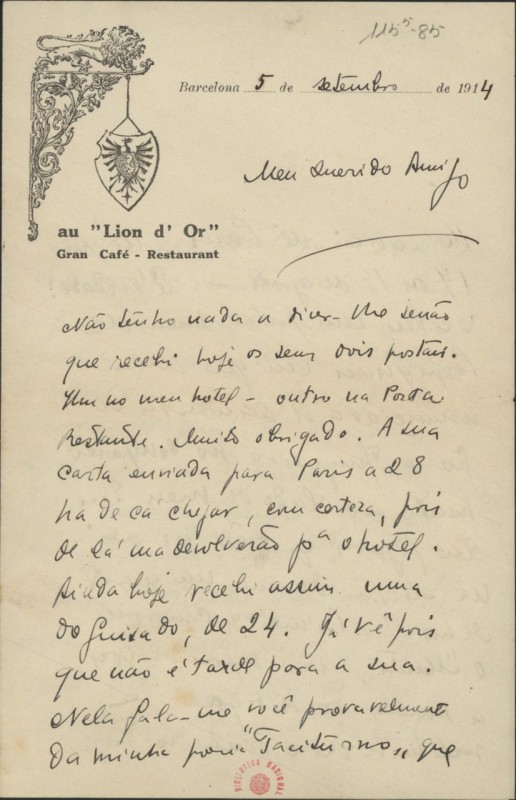 115⁵-85
Barcelona 5 de setembro de 1914
Meu Querido Amigo
au "Lion d' Or"
Gran Café - Restaurant
Não tenho nada a dizer-lhe senão
que recebi hoje os seus dois postais.
Um no meu hotel - outro na Posta
Restante. Muito obrigado. A sua
carta enviada para Paris a 28
ha de ca chegar, com certeza, pois
de lá ma devolverão pª o hotel.
Ainda hoje recebi assim uma
do Guisado, de 24. Já vê pois
que não é tarde para a sua.
Nela fala-me você provavelmente
da minha poesia "Taciturno", que
BIBLIOTECA NACIONAL